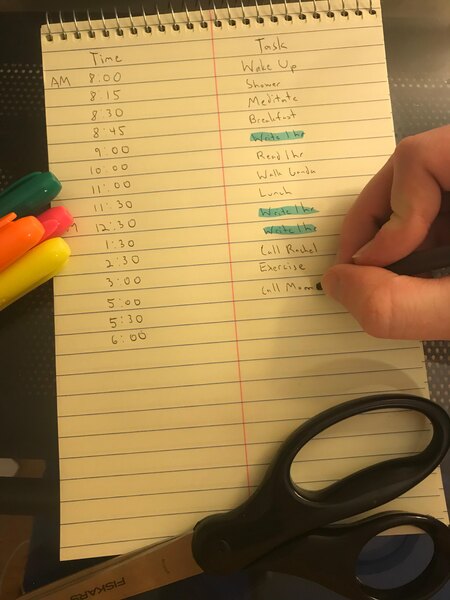 Time Task
AM 8:00 Wake Up
8:15 Shower
8:30 Meditate
8:45 Breakfast
9:00 Write 1hr
10:00 Read 1hr
11:00 Walk
11:30 Lunch
12:30 Write 1hr
1:30 Write 1hr
2:30 Call Rachel
3:00 Exercise
5:00 Call Mom
5:30
6:00
FISKARS